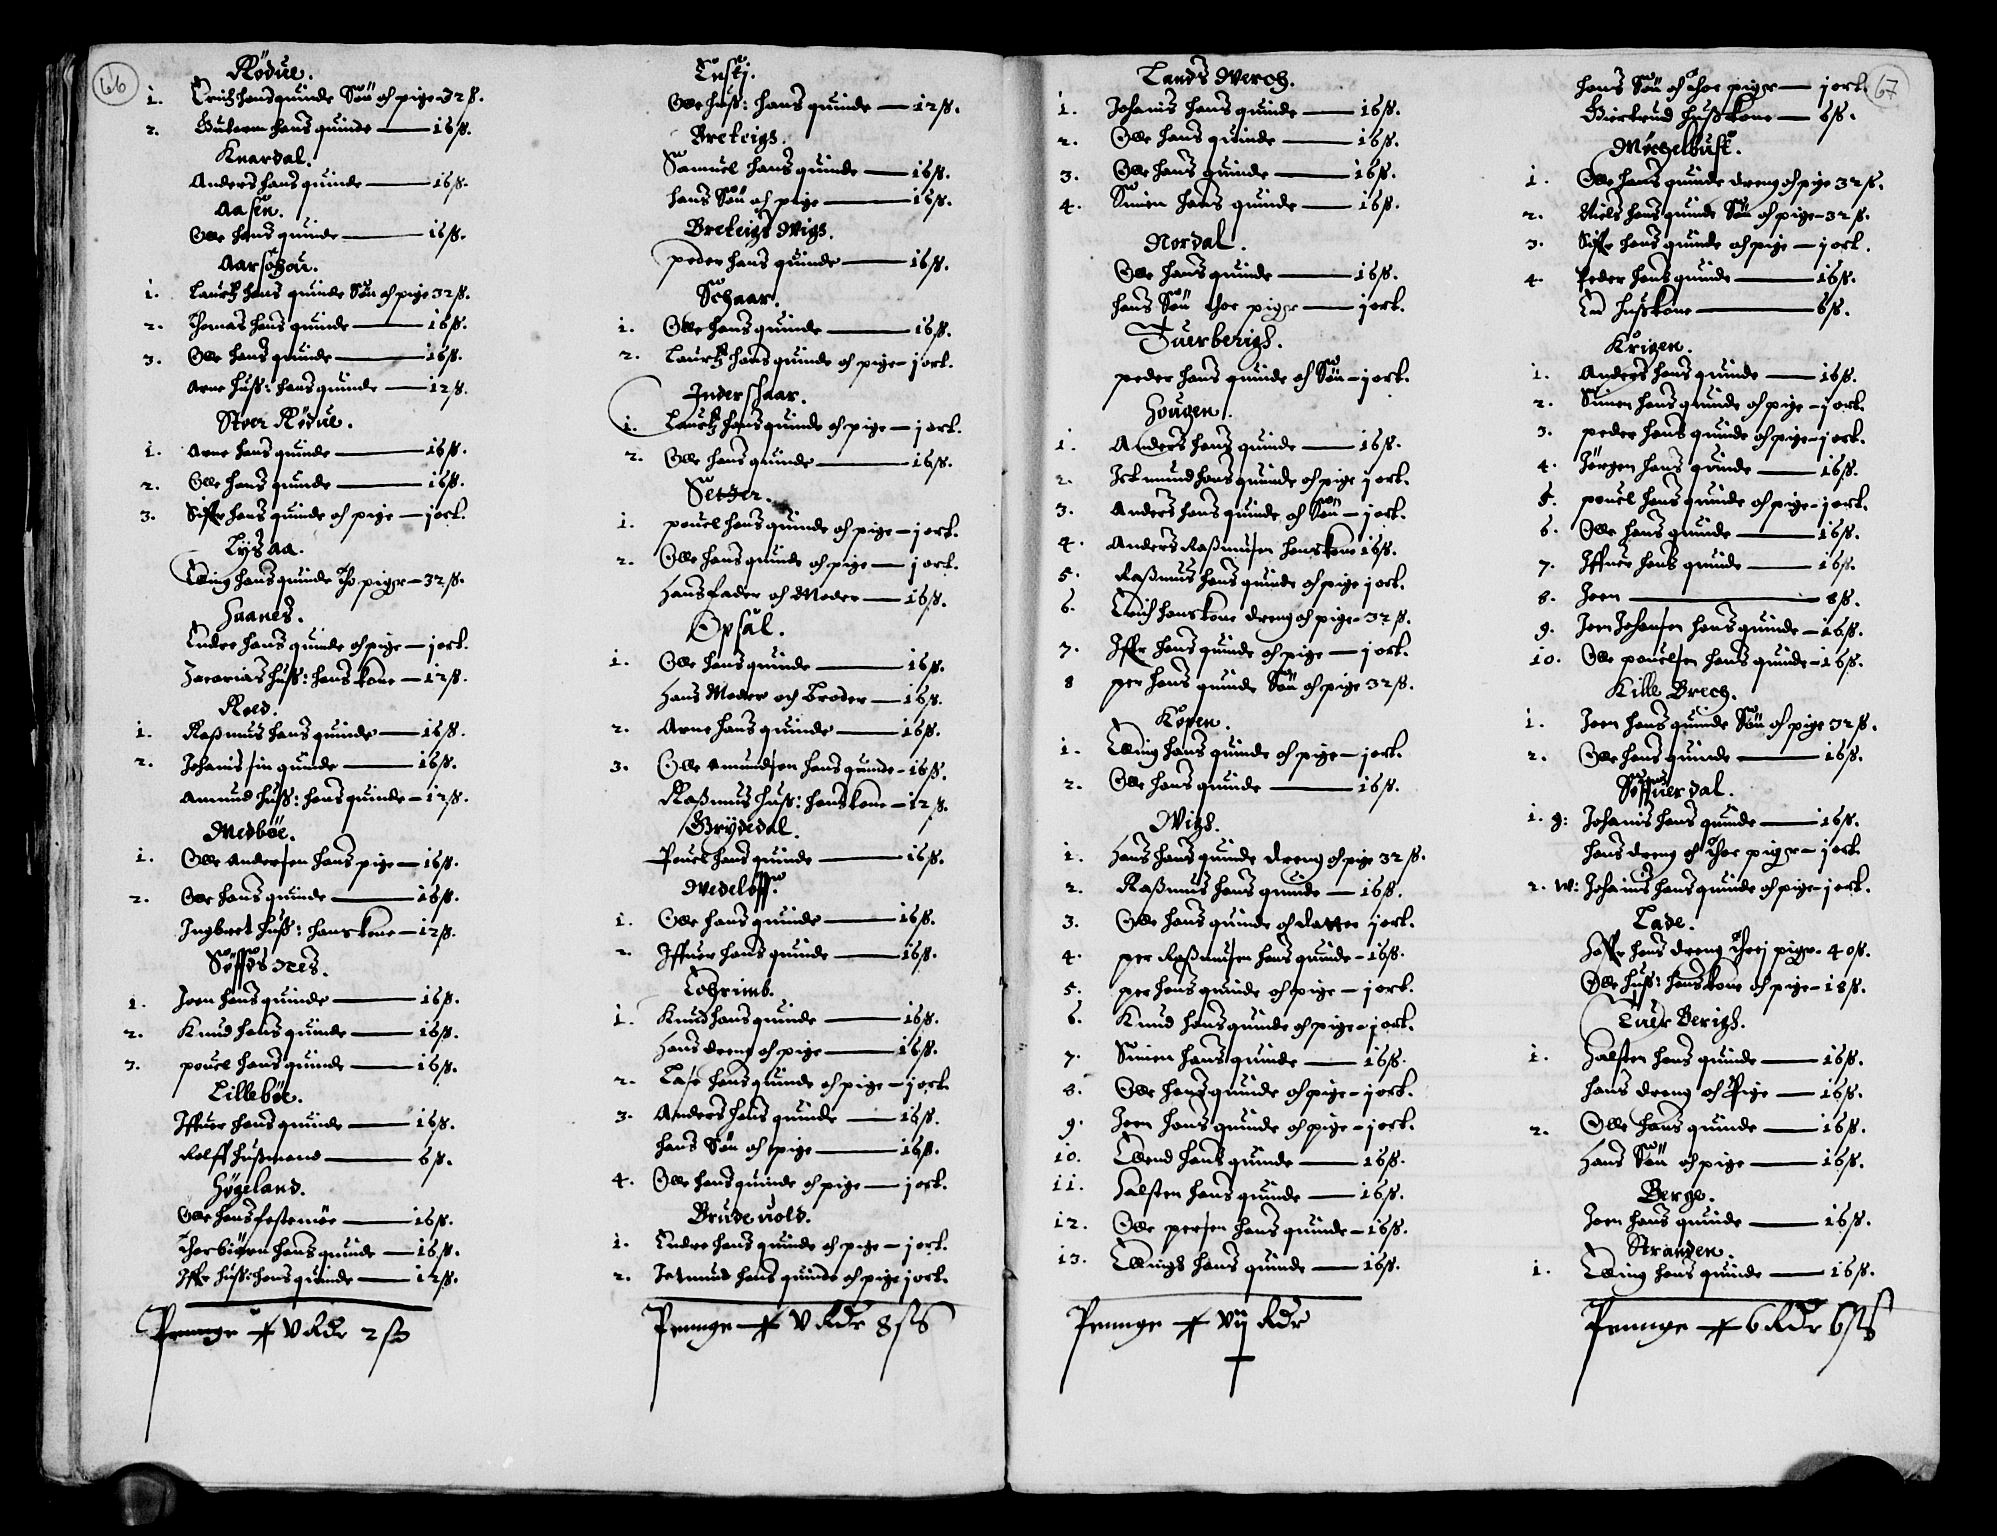 66
Rödue.
1. Erich hans quinde Sön och pige - 32 ß.
2. Guttorm hans quinde — 16 ß.
Knardal.
Anders hans quinde — 16 ß.
Aasen.
Olle hans quinde — 16 ß.
Aarsöhou.
1. Lauritz hans quinde Sön och pige 32 ß.
2. Thomas hans quinde — 16 ß.
3. Olle hans quinde — 16 ß.
Arne huß: hans quinde — 12 ß.
Stoer Rödue.
1. Arne hans quinde — 16 ß.
2. Olle hans quinde — 16 ß.
3. Siffr hans quinde och pige — j ort.
Lys Aa.
Elling hans quinde tho piger — 32 ß.
Haanes.
Endre hans quinde och pige — j ort.
Zacarias huß: hans kone — 12 ß.
Roed.
1. Raßmus hans quinde — 16 ß.
2. Johanis sin quinde — 16 ß.
Amund huß: hans quinde — 12 ß.
Medböe.
1. Olle Andersen hans pige — 16 ß.
2. Olle hans quinde — 16 ß.
Ingbret huß: hans kone — 12 ß.
1. Joen hans quinde — 16 ß.
2. Knud hans quinde — 16 ß.
3. pouel hans quinde — 16 ß.
Lilleböe.
Iffuer hans quinde — 16 ß.
Rolff hußmand — 6 ß.
Högeland.
Olle hans festemöe — 16 ß.
Thorbiörn hans quinde — 16 ß.
Iffr huß: hans quinde — 12 ß.
Penninge # V Rdr 2 ß
Olle huß: hans quinde — 12 ß.
Breteigs.
Samuel hans quinde — 16 ß.
hans Sön och pige — 16 ß.
Breteigs Wigs.
peder hans quinde — 16 ß.
Schaar.
1. Olle hans quinde — 16 ß.
2. Lauritz hans quinde och pige — j ort.
Inderschaar.
1. Lauritz hans quinde och pige — j ort.
2. Olle hans quinde — 16 ß.
Setzer.
1. pouel hans quinde och pige — j ort.
2. Olle hans quinde och pige — j ort.
Hans fader och Moder — 16 ß.
Opsal.
1. Olle hans quinde — 16 ß.
Hans Moder och Broder — 16 ß.
2. Arne hans quinde — 16 ß.
3. Olle Amundsen hans quinde - 16 ß.
Raßmus huß: hans kone — 12 ß.
Gryddedal.
Pouel hans quinde — 16 ß.
Medelöff.
1. Olle hans quinde — 16 ß.
2. Iffuer hans quinde — 16 ß.
1. Knud hans quinde — 16 ß.
Hans dreng och pige — 16 ß.
2. Lase hans quinde och pige — j ort.
3. Anders hans quinde — 16 ß.
hans Sön och pige — 16 ß.
4. Olle hans quinde och pige — j ort.
Brudeuold.
1. Endre hans quinde och pige — j ort.
2. Jetmund hans quinde och pige j ort.
Penninge # V Rdr 8 ß
Lands Werch.
1. Johanis hans quinde — 16 ß.
2. Olle hans quinde — 16 ß.
3. Olle hans quinde — 16 ß.
4. Simen hans quinde — 16 ß.
Nordal.
Olle hans quinde — 16 ß.
hans Sön thoe piger — j ort.
Tuerberigs.
peder hans quinde och Sön — j ort.
Hougen.
1. Anders hans quinde — 16 ß.
2. Jetmund hans quinde och pige j ort.
3. Anders hans quinde och Sön — j ort.
4. Anders Raßmusen hans kone 16 ß.
5. Raßmus hans quinde och pige j ort.
6. Erich hans kone dreng och pige - 32 ß.
7. Iffr hans quinde och pige — j ort.
8 per hans quinde Sön och pige 32 ß.
Kopen.
1. Elling hans quinde och pige — j ort.
2. Olle hans quinde — 16 ß.
Wigs.
1. Hans hans quinde dreng och pige 32 ß.
2. Raßmus hans quinde — 16 ß.
3. Olle hans quinde och datter j ort.
4. per Raßmusen hans quinde - 16 ß.
5. per hans quinde och pige — j ort.
6. Knud hans quinde och pige — j ort.
7. Simen hans quinde — 16 ß.
8. Olle hans quinde och pige — j ort.
9. Joen hans quinde och pige — j ort.
10. Ellend hans quinde — 16 ß.
11. Halsten hans quinde — 16 ß.
12. Olle persen hans quinde — 16 ß.
13. Ellings hans quinde — 16 ß.
Penninge # Vij Rdr
67
hans Sön och thoe piger — j ort.
Giertrud hußkone — 6 ß.
Möchelbust.
1. Olle hans quinde dreng och pige 32 ß.
2. Niels hans quinde Sön och pige — 32 ß.
3. Siffr hans quinde och pige — j ort.
4. Peder hans quinde — 16 ß.
En hußkone — 6 ß.
Krigen.
1. Anders hans quinde — 16 ß.
2. Simen hans quinde och pige — j ort.
3. peder hans quinde och pige — j ort.
4. Jörgen hans quinde — 16 ß.
5. pouel hans quinde och pige — j ort.
6. Olle hans quinde — 16 ß.
7. Iffuer hans quinde — 16 ß.
8. Joen — 8 ß.
9. Joen Johansen hans quinde — 16 ß.
10. Olle pouelsen hans quinde — 16 ß.
Kille Brech.
1. Joen hans quinde Sön och pige 32 ß.
2. Olle hans quinde — 16 ß.
Söffuerdal.
1. g: Johanis hans quinde — 16 ß.
hans dreng och thoe piger — j ort.
2. W: Johanis hans quinde och pige — j ort.
Lade.
hans dreng thoej piger - 40 ß.
Olle huß: hans kone och pige — 18 ß.
Tuer Berigs.
1. Halsten hans quinde — 16 ß.
hans dreng och Pige — 16 ß.
2. Olle hans quinde — 16 ß.
Hans Sön och pige — 16 ß.
Berge.
Joen hans quinde — 16 ß.
Stranden.
1. Elling hans quinde — 16 ß.
Penninge # 6 Rdr 6 ß